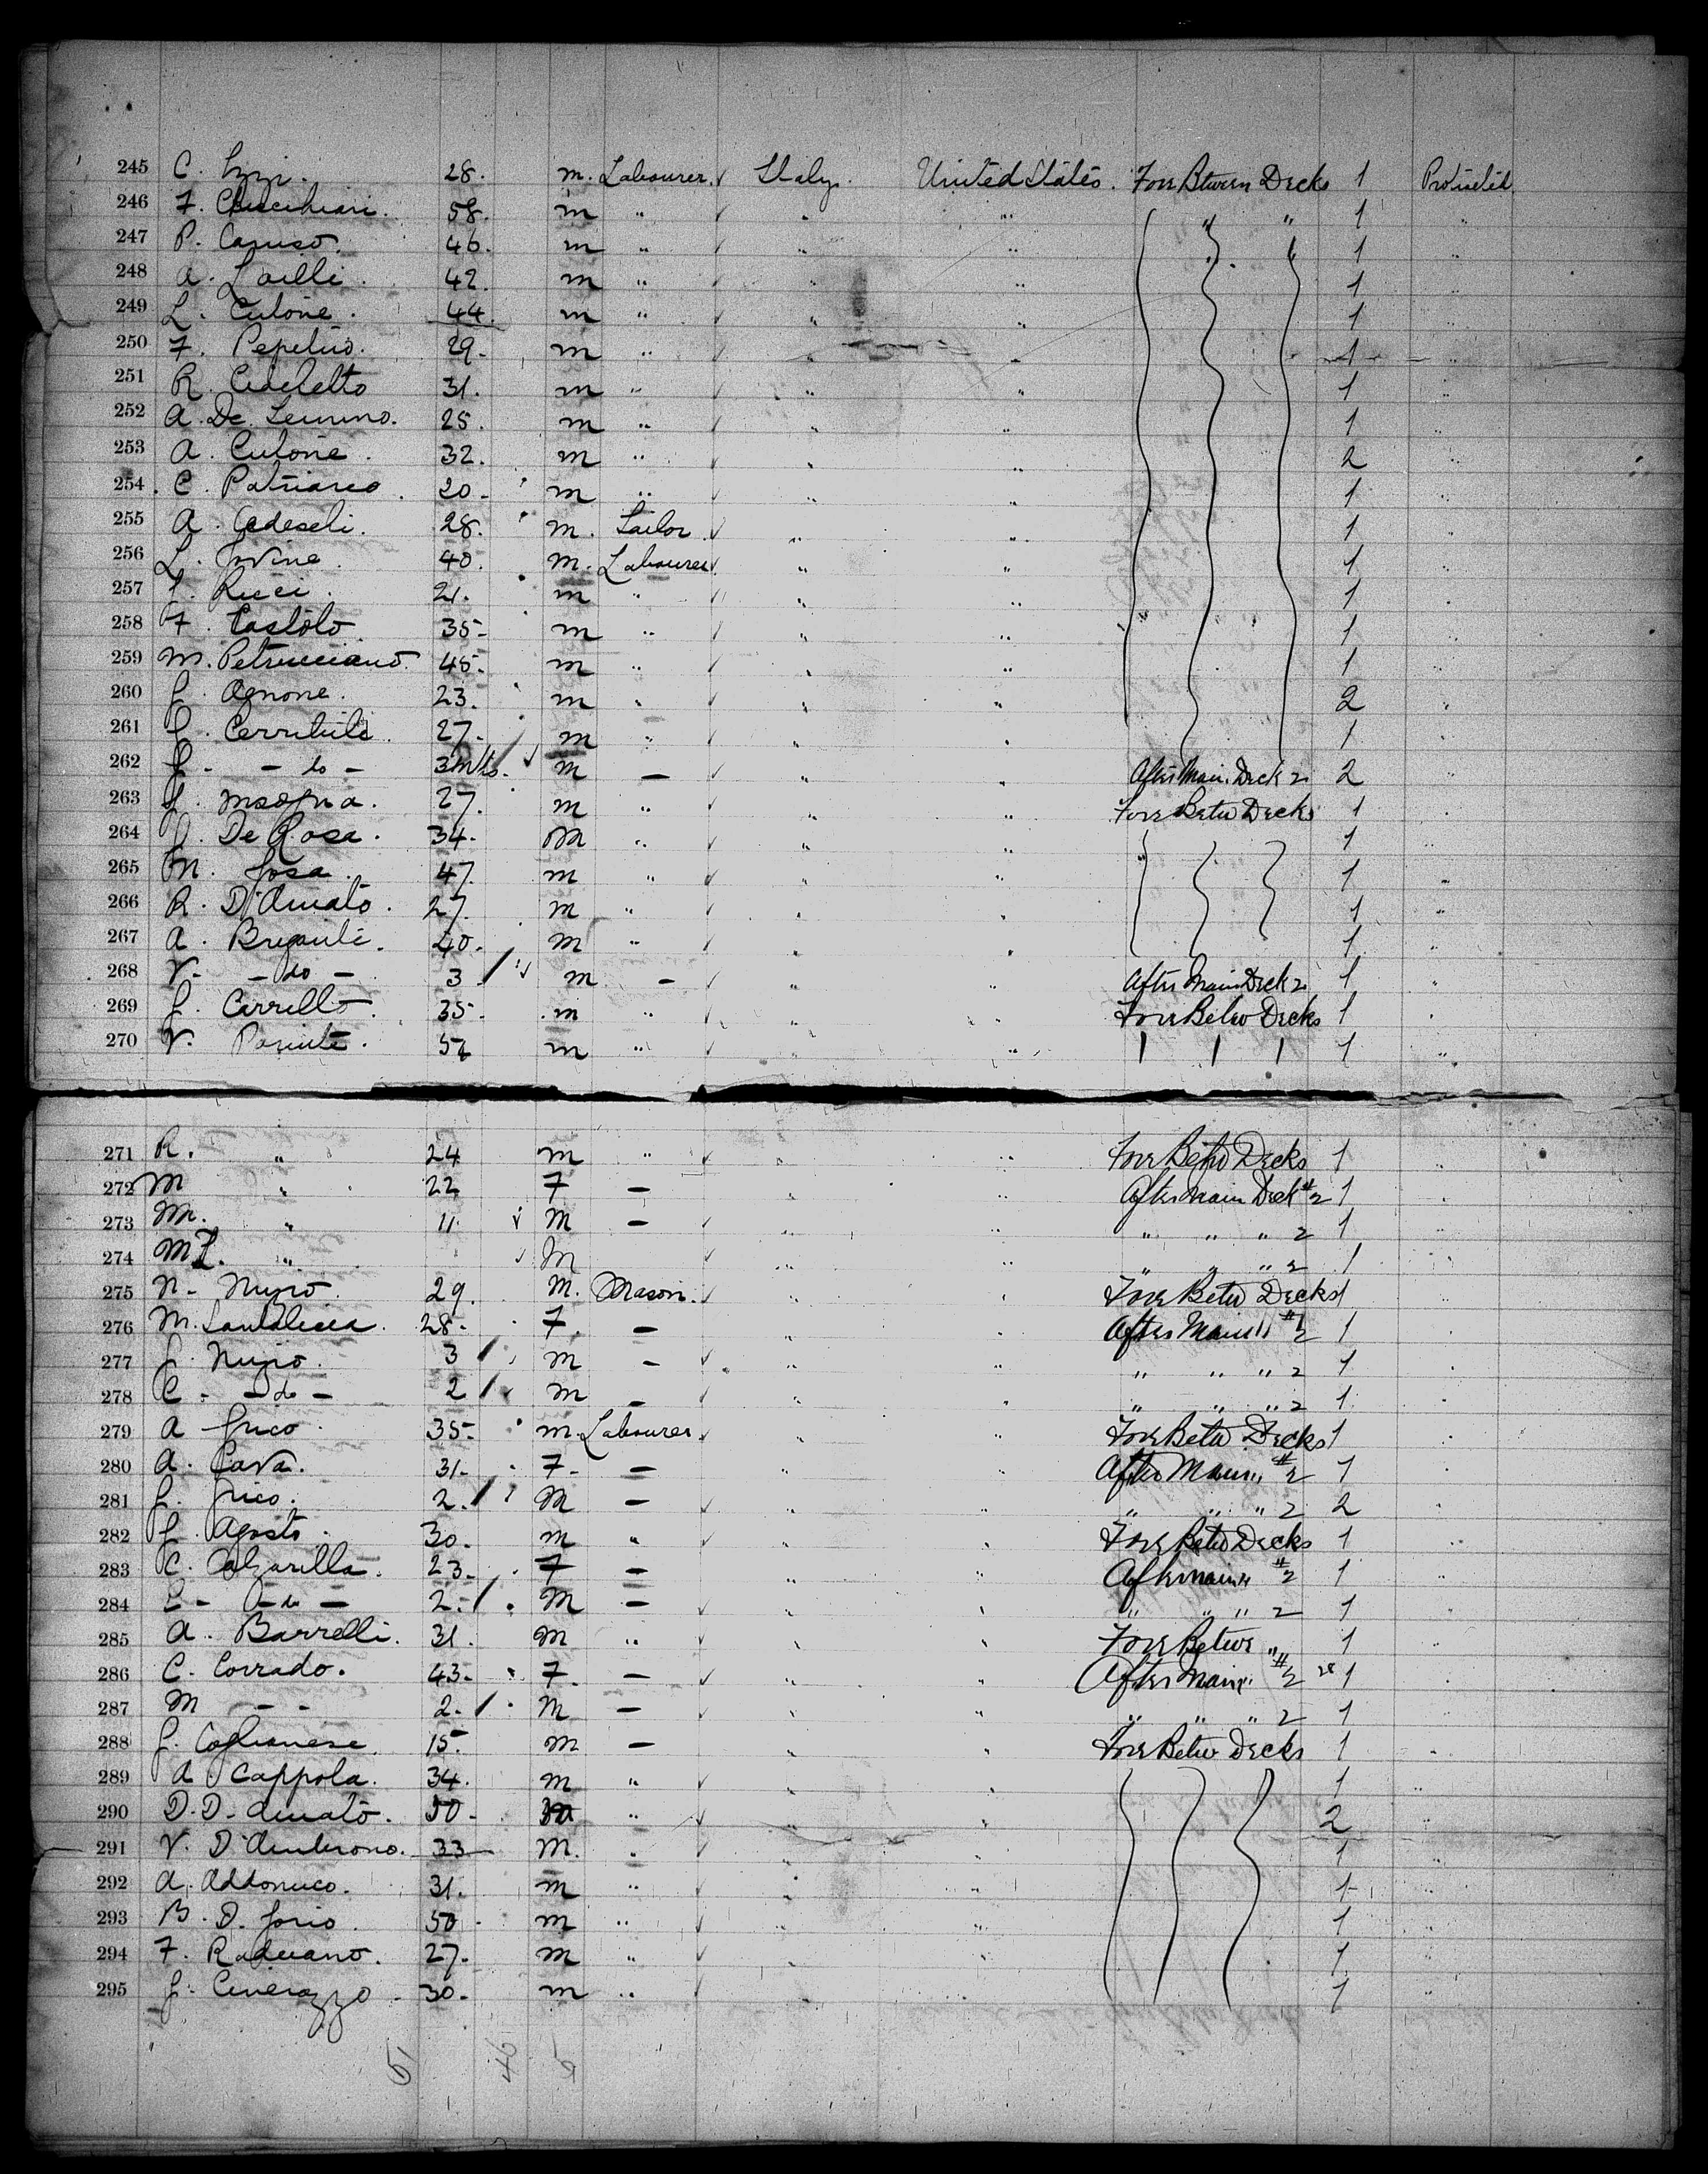 245 C. Izzi. 28. m. Labourer. Italy. United States. Fore Btween Decks 1
246 F. 58. m " " " " " 1 "
247 P. Caruso. 46. m " " " " " 1 "
248 A. Loilli. 42. m " " " 1 "
249 L. Cutone. 44. m " " " 1 "
250 F. 29. m " " " 1 "
251 R. 31. m " " " 1 "
252 A. De 25. m " " " 1 "
253 A. Cutone. 32. m " " " 2 "
254 C. 20. m " " " 1 "
255 A. Cedeseli. 28. m. Tailor " " 1 "
256 L. Iovine. 40. m. Labourer " " 1 "
257 Ricci. 21. m " " " 1 "
258 F. 35. m " " " " 1 "
259 M. Petrucciano. 45. m " " " 1 "
260 G. Agnone. 23. m " " " 2 "
261 G. 27. m " " " 1 "
262 G. - do - 3 Mts. m — " " After Main Deck 2 2 "
263 27. m " " " Fore Betw Decks 1 "
264 De Rosa. 34. M " " " " 1 "
265 M. Iosa. 47. m " " " 1 "
266 R. D'Amato. 27. m " " " 1 "
267 A. Briganti. 40. m " " " 1 "
268 V. - do - 3 m - " " After Main Deck 2 1 "
269 G. Cirrello. 35. m " " " Fore Betw Decks 1 "
270 V. Parente. 52 m " " " 1 "
271 R. " 24 m " " " Fore Betw Decks 1 "
272 M " 22 F — " " After Main Deck #2 1 "
273 M. " 11. M — " " " " " 2 1 "
274 M " M " " " " " 2 1 "
275 N. Nigro. 29. M. Mason. " " Fore Betw Decks 1 "
276 M. 28. F. — " " After Main " #2 1 "
277 G. Nigro. 3 m - " " " " " 2 1 "
278 C. - do - 2 m - " " " " " 2 1
279 A Grico. 35. m. Labourer. " " Fore Betw Decks 1 "
280 A. Cava. 31. F. — " " After Main " #2 1 "
281 G. Grico. 2. M — " " " " " 2 2 "
282 G. Agosto. 30. m " " " Fore Betw Decks 1 "
283 C. Calzarilla. 23. F — " " After main " #2 1 "
284 - do - 2. M — " " " " " 2 1 "
285 A. Barrelli. 31. M " " " Fore Betwe " 1 "
286 C. Corrado. 43. F. — " " After Main " #2 1 "
287 M - - 2. M — " " " " " 2 1 "
288 G. Coglianese. 15. m — " " Fore Betw Decks 1 "
289 A. Cappola. 34. m " " " 1 "
290 D. D. Amato. 50. " " " 2 "
291 V. D'Ambrono. 33 M. " " " 1 "
292 A. Addonuco. 31. m " " " 1 "
293 B. D. Iorio. 50 m " " " 1 "
294 F. Raduano. 27. m " " " 1 "
295 G. Cenerazzo. 30. m " " " 1 "